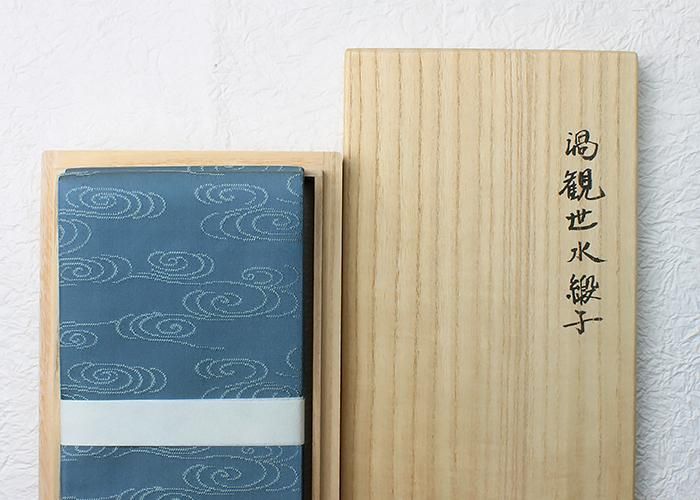 渦観世水緞子